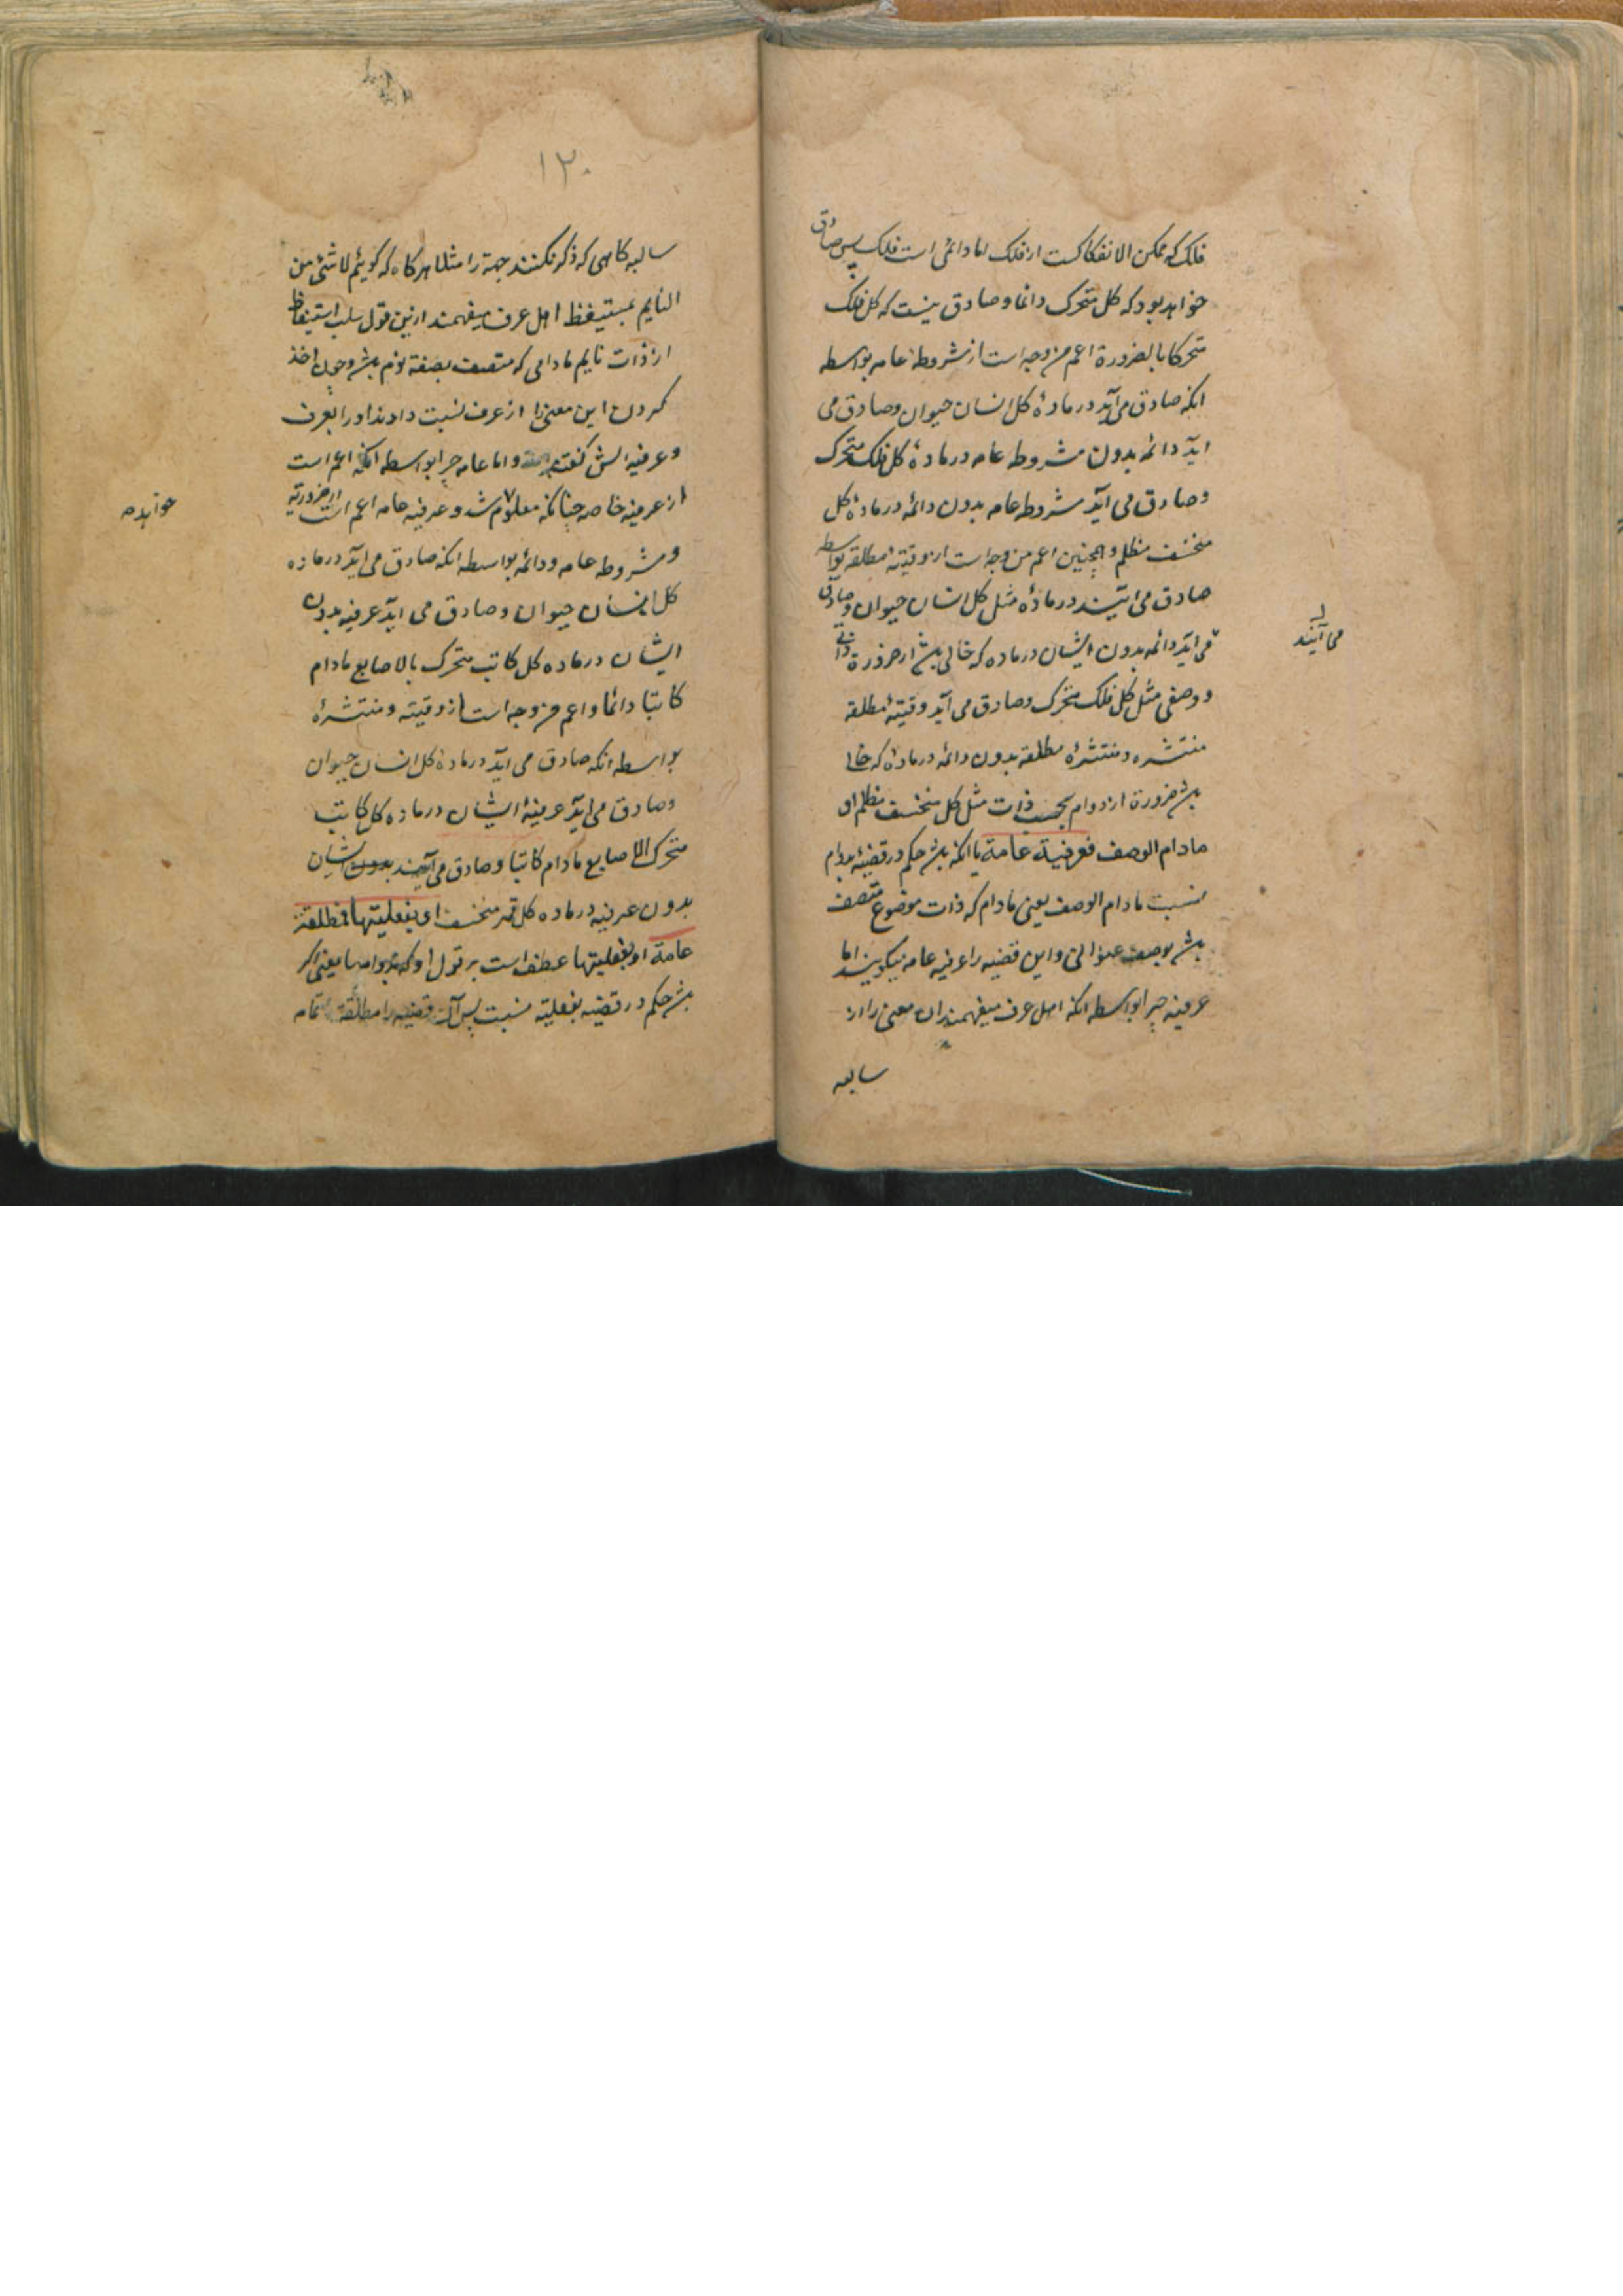 فلک که ممکن الانفکاکست از فلک اما دائمی است فلک پس صادق
خواهد بود که کل متحرک دائما و صادق نیست که کل فلک
متحرکا بالضرورة اعم من وجه است از مشروطۀ عامه بواسطه
انکه صادق می آید در مادۀ کل انسان حیوان و صادق می
اید دائمه بدون مشروطه عامه در مادۀ کل فلک متحرک
و صادق می آید مشروطه عامه بدون دائمه در مادۀ کل
منخسف مظلم و همچنین اعم من وجه است از وقتیۀ مطلقه بواسطه
صادق می آیند در مادۀ مثل کل انسان حیوان و صادق
می آیند
می اید دائمه بدون ایشان در ماده که خالی باشد از ضرورة ذاتی
و وصفی مثل کل فلک متحرک و صادق می آید وقتیۀ مطلقه
منتشره و منتشرۀ مطلقه بدون دائمه در مادۀ که خالی
باشد ضرورة از دوام بحسب ذات مثل کل منخسف مظلم او
مادام الوصف فعرفیة عامة یا انکه باشد حکم در قضیه بدوام
نسبت مادام الوصف یعنی مادام که ذات موضوع متصف
باشد بوصف عنوانی و این قضیه را عرفیه عامه میگویند اما
عرفیه چرا بواسطه انکه اهل عرف میفهمند این معنی را از
سالبه
۱۲۰
سالبه کاهی که ذکر نکنند جهة را مثلا هرکاه که کوئیم لا شئ من
النایم بمستیقظ اهل عرف میفهمند ازین قول سلب استیقاظ
از ذات نایم مادامی که متصف بصفة نوم باشد و چون اخذ
کردن این معنی را از عرف نسبت دادند او را بعرف
و عرفیه اش کفتند و اما عامه چرا بواسطه انکه اعم است
از عرفیه خاصه چنانکه معلوم شد و عرفیه عامه اعم است از ضروریه
خواهد
و مشروطه عامه و دائمه بواسطه انکه صادق می اید در ماده
کل انسان حیوان و صادق می اید عرفیه بدون
ایشان در ماده کل کاتب متحرک بالاصابع مادام
کاتبا دائما و اعم من وجه است از وقتیه و منتشرۀ
بواسطه انکه صادق می آید در مادۀ کل انسان حیوان
و صادق می اید عرفیۀ ایشان در ماده کل کاتب
متحرک الاصابع مادام کاتبا و صادق می آیند بدون ایشان
بدون عرفیه در ماده کل قمر منخسف او بفعلیتها فمطلقة
عامة او بفعلیتها عطف است بر قول او که بدوامها یعنی اکر
باشد حکم در قضیه بفعلیة نسبت پس آن قضیه را مطلقۀ عامه